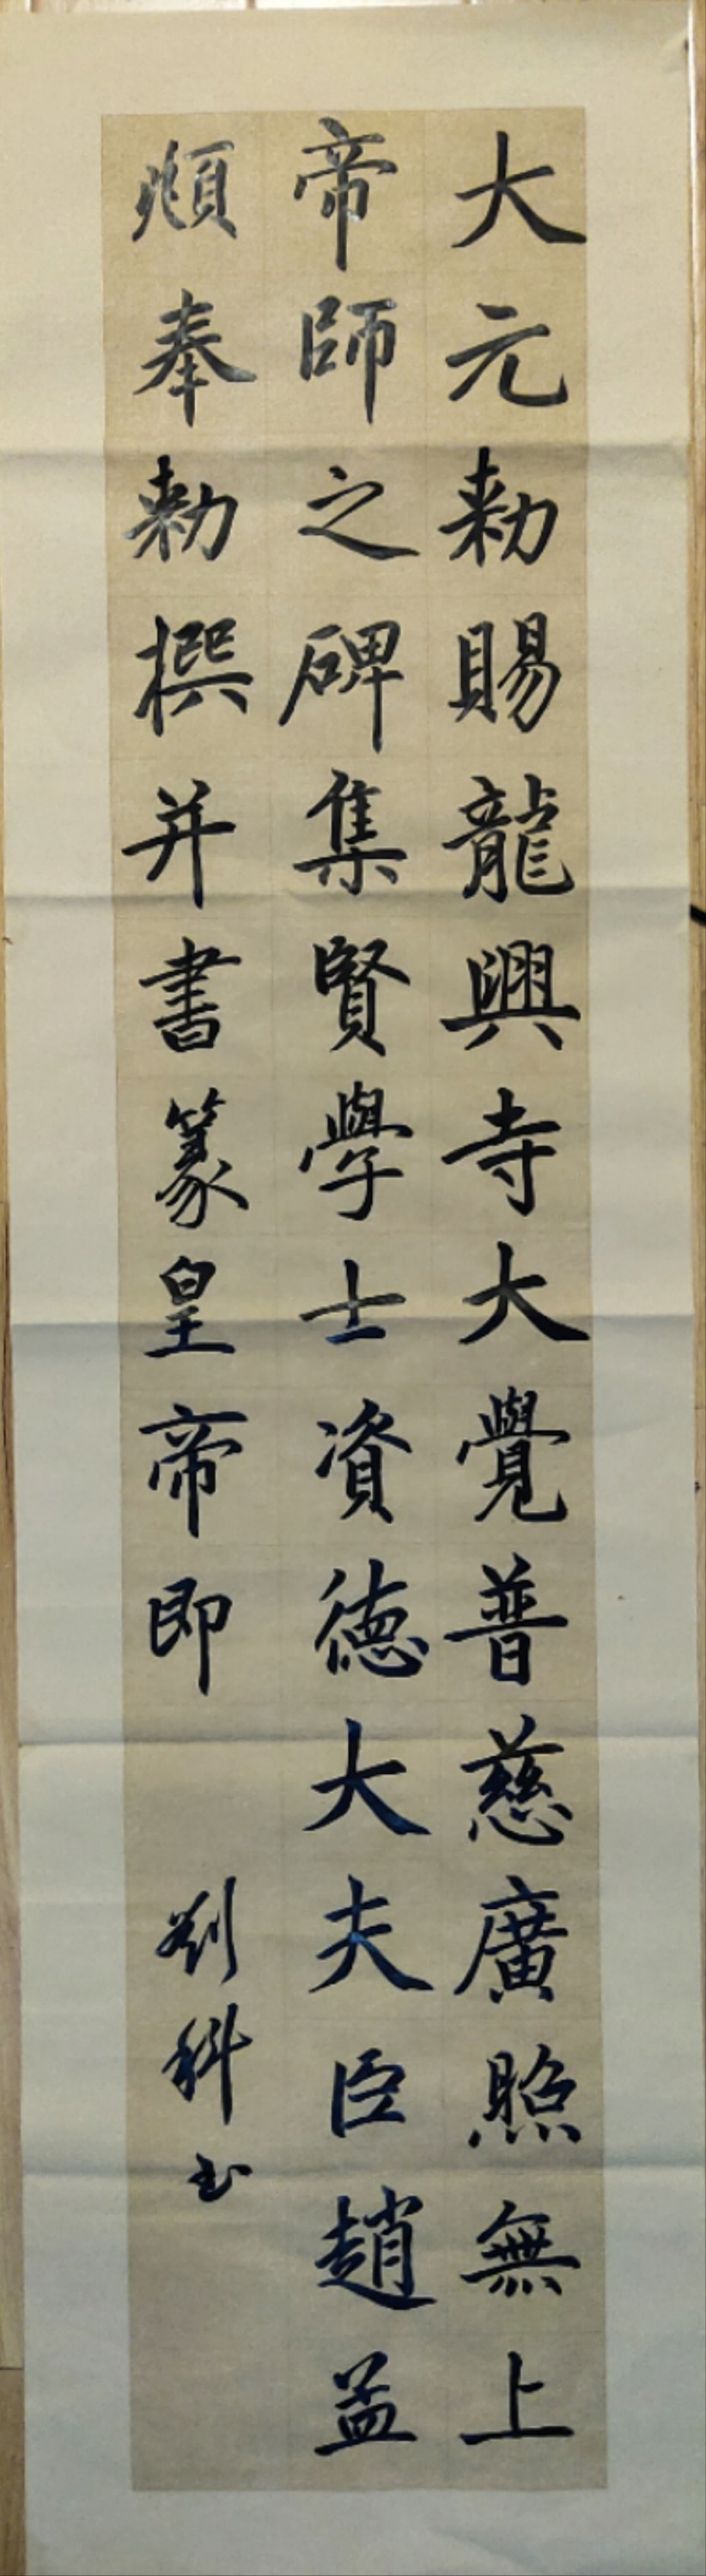 大元勑賜龍興寺大覺普慈廣照無上
帝師之碑集賢學士資德大夫臣趙孟
頫奉勑撰并書篆皇帝即
劉科书